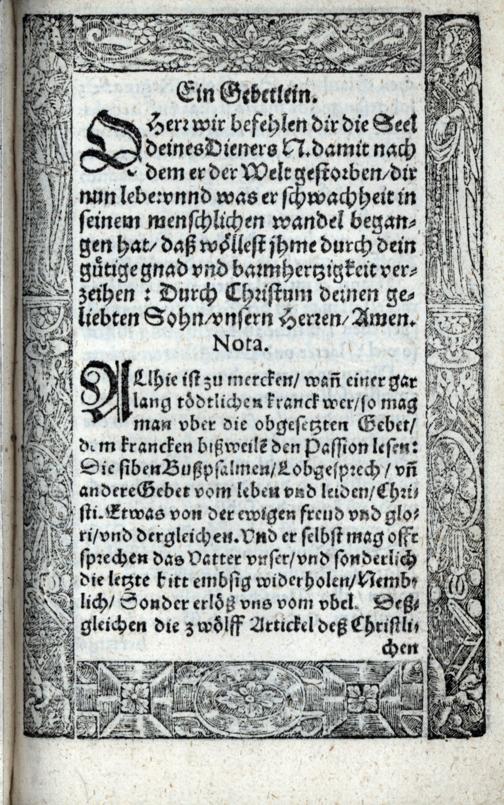 Ein Gebetlein.
O Herr wir befehlen dir die Seel
deines Dieners N. damit nach
dem er der Welt gestorben/dir
nun lebe: vnnd was er schwachheit in
seinem menschlichen wandel began⸗
gen hat/ daß wöllest jhme durch dein
gütige gnad vnd barmhertzigkeit ver⸗
zeihen : Durch Christum deinen ge⸗
liebten Sohn/vnsern Herren/ Amen.
Nota.
ALlhie ist zu mercken/ wañ einer gar
lang tödtlichen kranck wer/so mag
man vber die obgesetzten Gebet/
dem krancken bißweilẽ den Passion lesen:
Die siben Bußpsalmen/Lobgesprech/ vñ
andere Gebet vom leben vnd leiden/Chri⸗
sti. Etwas von der ewigen freud vnd glo⸗
ri/vnd dergleichen. Vnd er selbst mag offt
sprechen das Vatter vnser/vnd sonderlich
die letzte bitt embsig widerholen/Nemb⸗
lich/ Sonder erlöß vns vom vbel. Deß⸗
gleichen die zwölff Artickel deß Christli⸗
chen